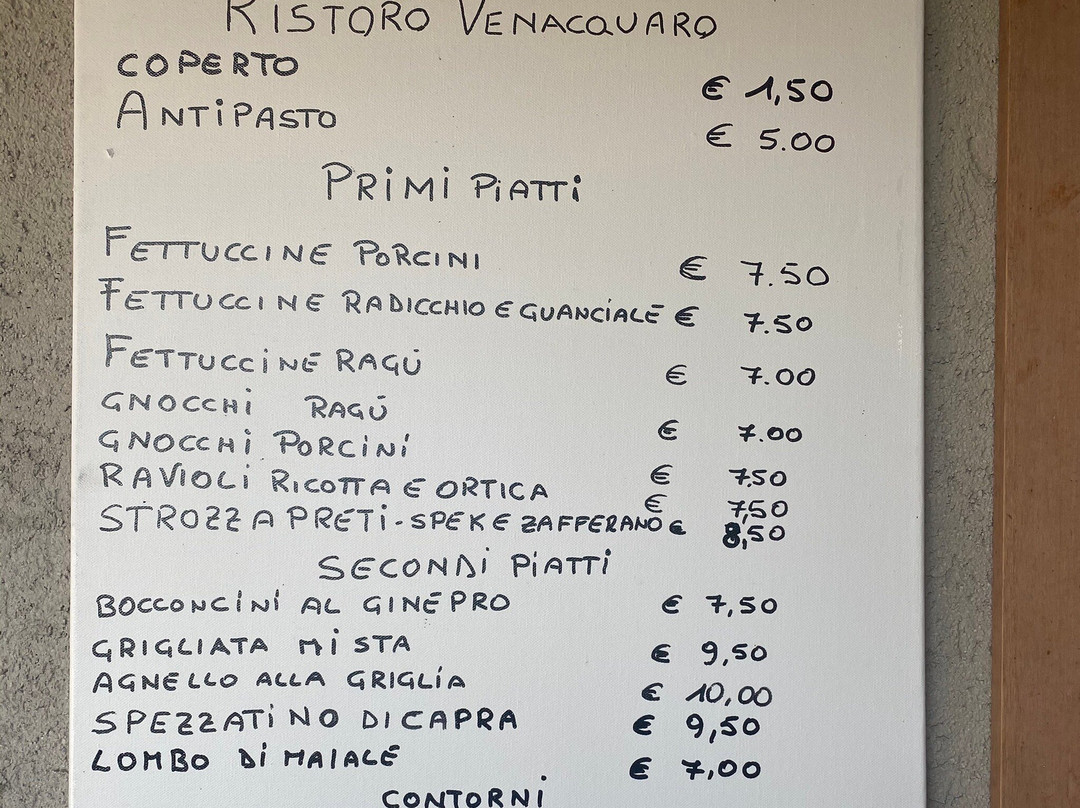 RISTORO VENACQUARO
COPERTO € 1,50
ANTIPASTO € 5.00
PRIMI PIATTI
FETTUCCINE PORCINI € 7.50
FETTUCCINE RADICCHIO E GUANCIALE € 7.50
FETTUCCINE RAGÚ € 7.00
GNOCCHI RAGÚ € 7.00
GNOCCHI PORCINI € 7.50
RAVIOLI RICOTTA E ORTICA € 7,50
STROZZAPRETI-SPEK E ZAFFERANO € 8,50
SECONDI PIATTI
BOCCONCINI AL GINEPRO € 7,50
GRIGLIATA MISTA € 9,50
AGNELLO ALLA GRIGLIA € 10,00
SPEZZATINO DI CAPRA € 9,50
LOMBO DI MAIALE € 7,00
CONTORNI